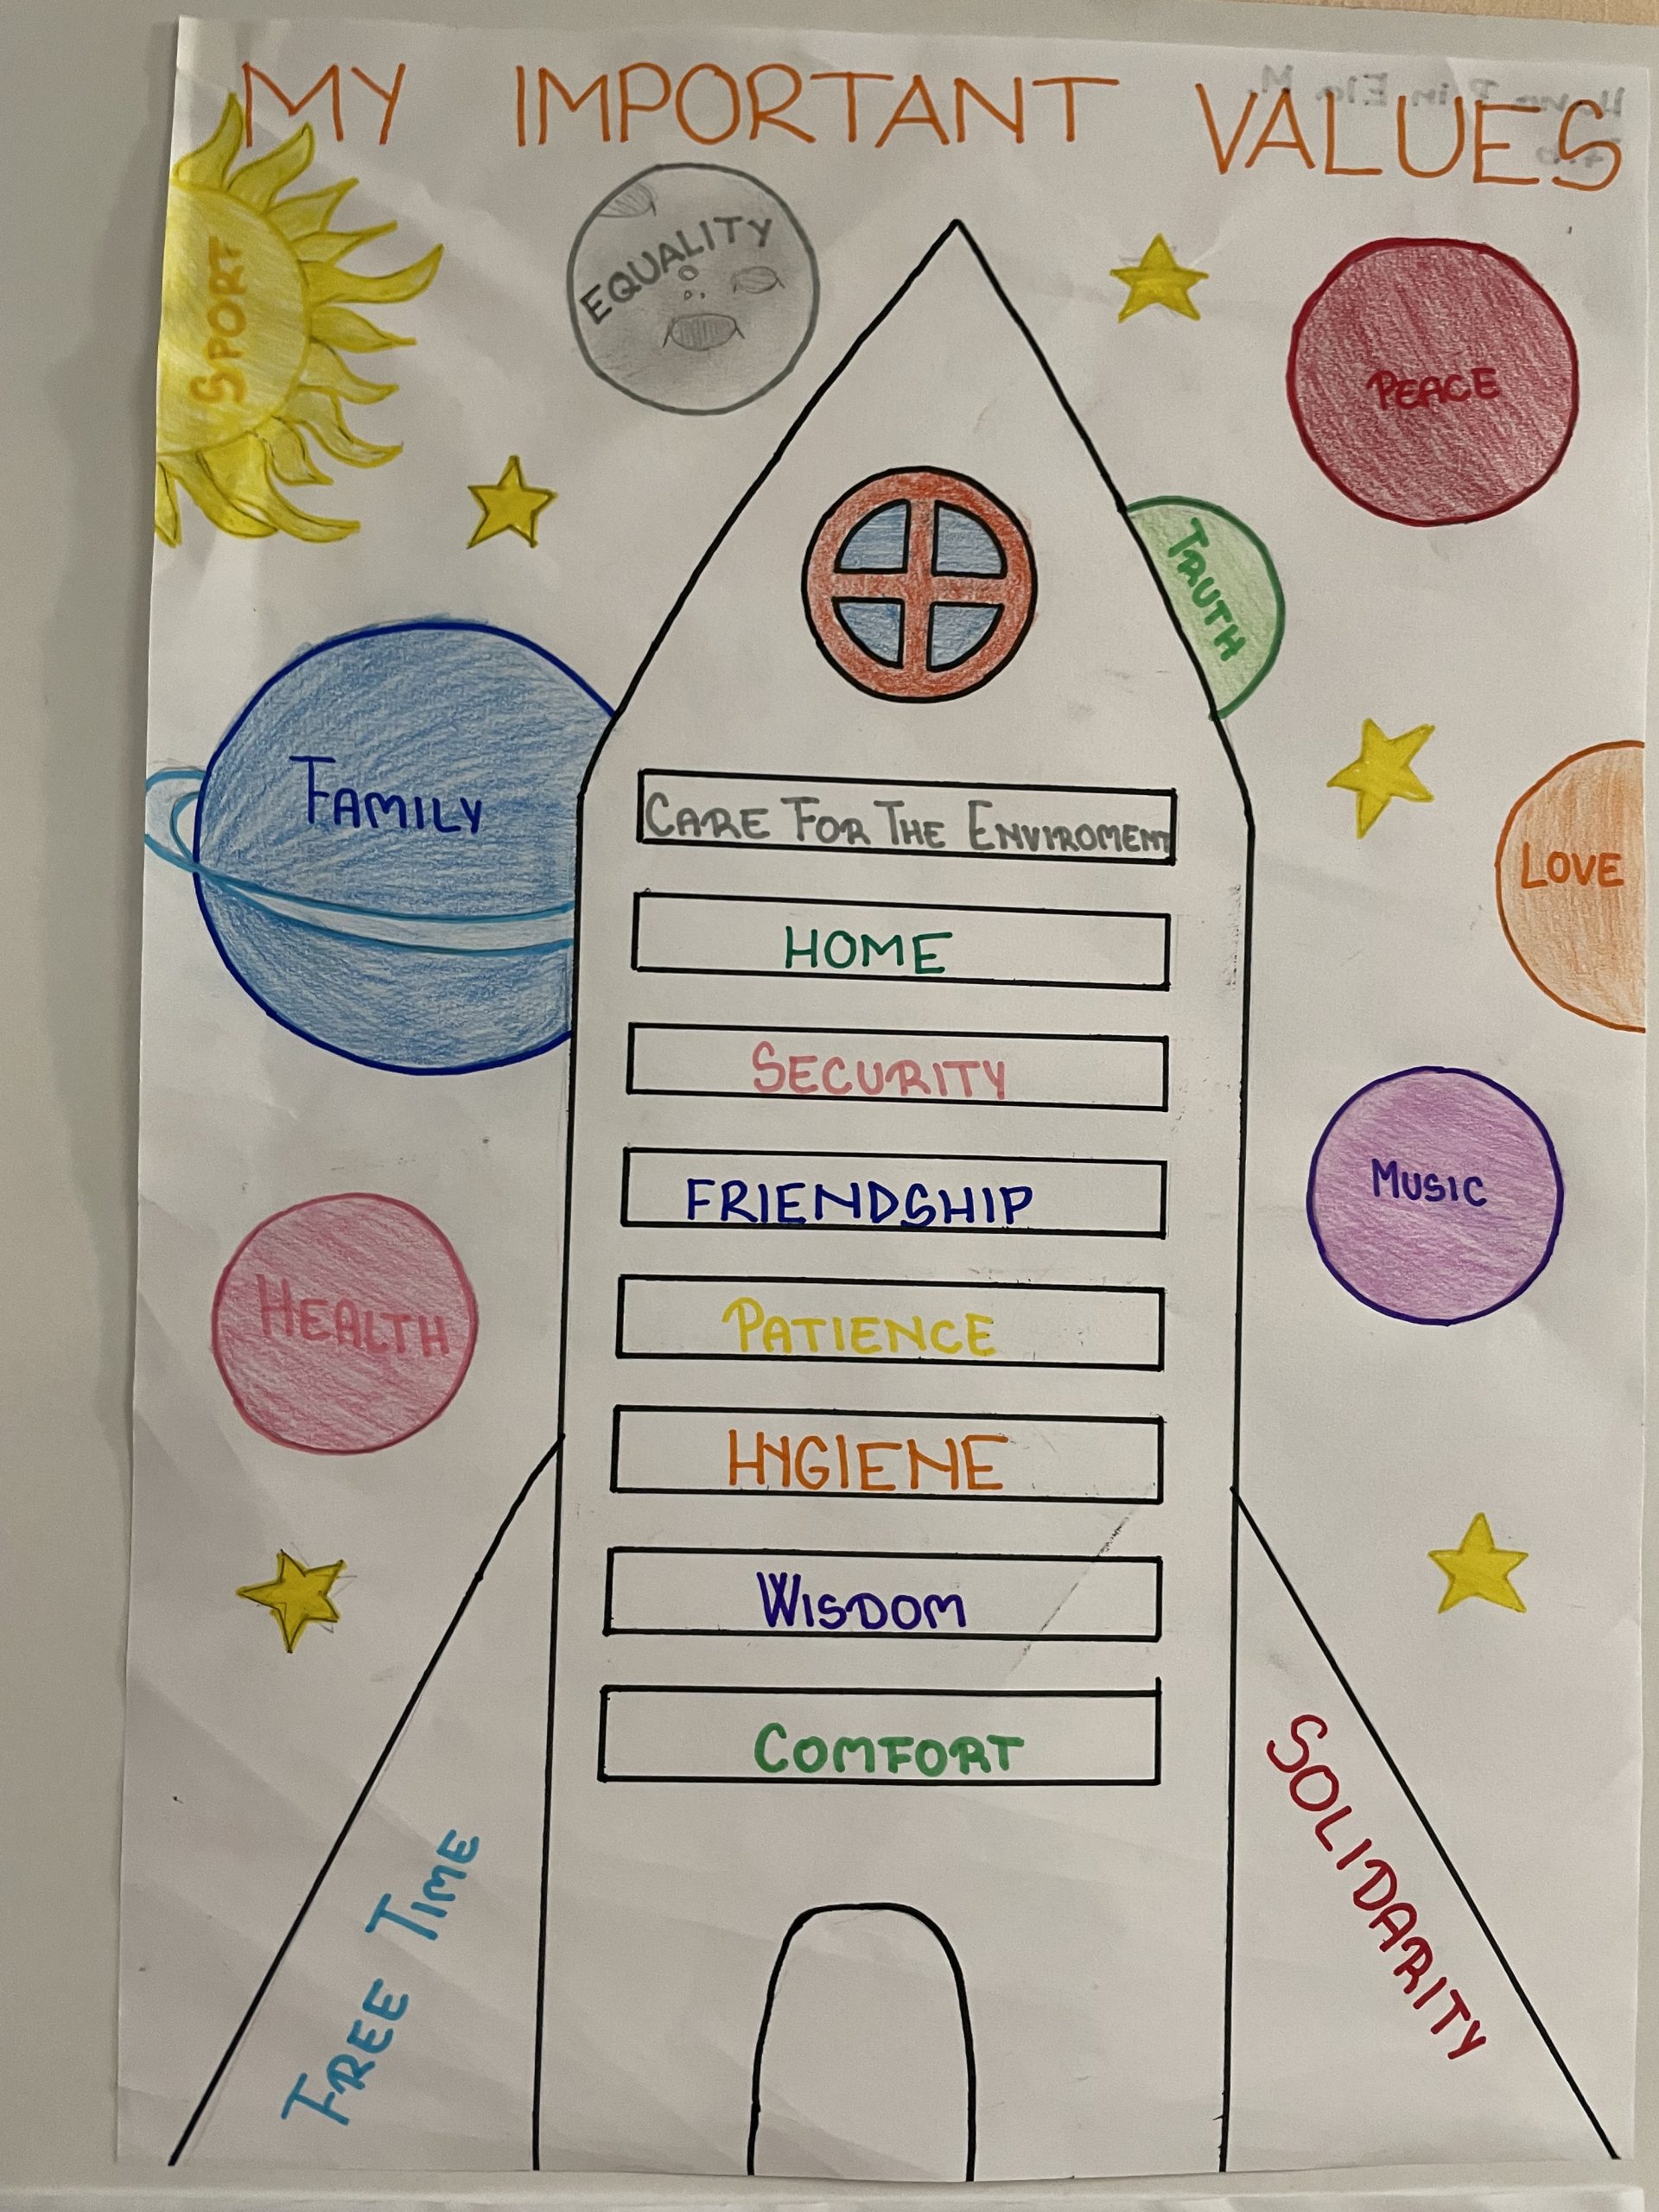 MY IMPORTANT VALUES
SPORT
EQUALITY
PEACE
TRUTH
FAMILY
LOVE
CARE FOR THE ENVIROMENT
HOME
SECURITY
FRIENDSHIP
MUSIC
HEALTH
PATIENCE
HYGIENE
WISDOM
COMFORT
FREE TIME
SOLIDARITY